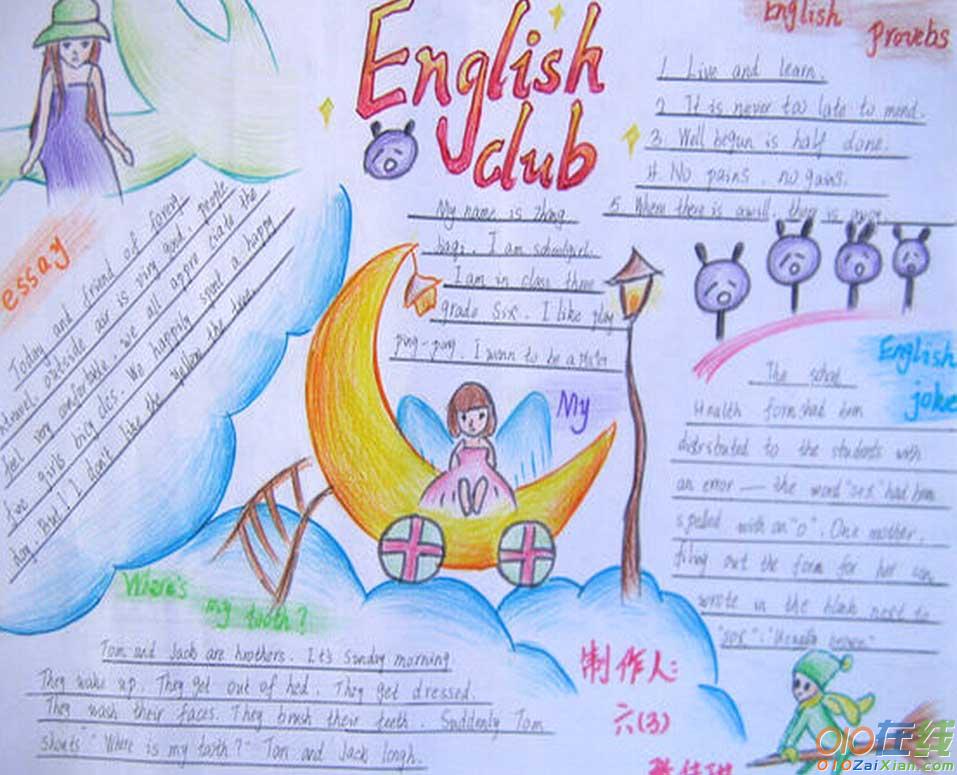 English
club
English
Proverbs
1. Live and learn.
2. It is never too late to mend.
3. Well begun is half done.
4. No pains. no gains.
5. Where there is a will there is
My name is Zhang
I am schoolgirl.
I am in class three
grade six. I like play
ping-pong. I wann to be a
My
essay
Today and friend of
outside air is very good. people
feel very comfortable. we all appre ciate the
girls bicy cles. We happily spent a happy
day. But I don't like the yellow the
English
joke
The school
Health form had
distributed to the students with
an error — the word "sex" had
spelled with an "o". One mother,
out the form for her son
wrote in the blank next to
"sox":
Where's
my tooth?
Tom and Jack are brothers. It's Sunday morning
They wake up. They get out of bed. They get dressed.
They wash their faces. They brush their teeth. Suddenly Tom
shouts "Where is my tooth?" Tom and Jack
制作人:
六(3)
010在线
010ZaiXian.com